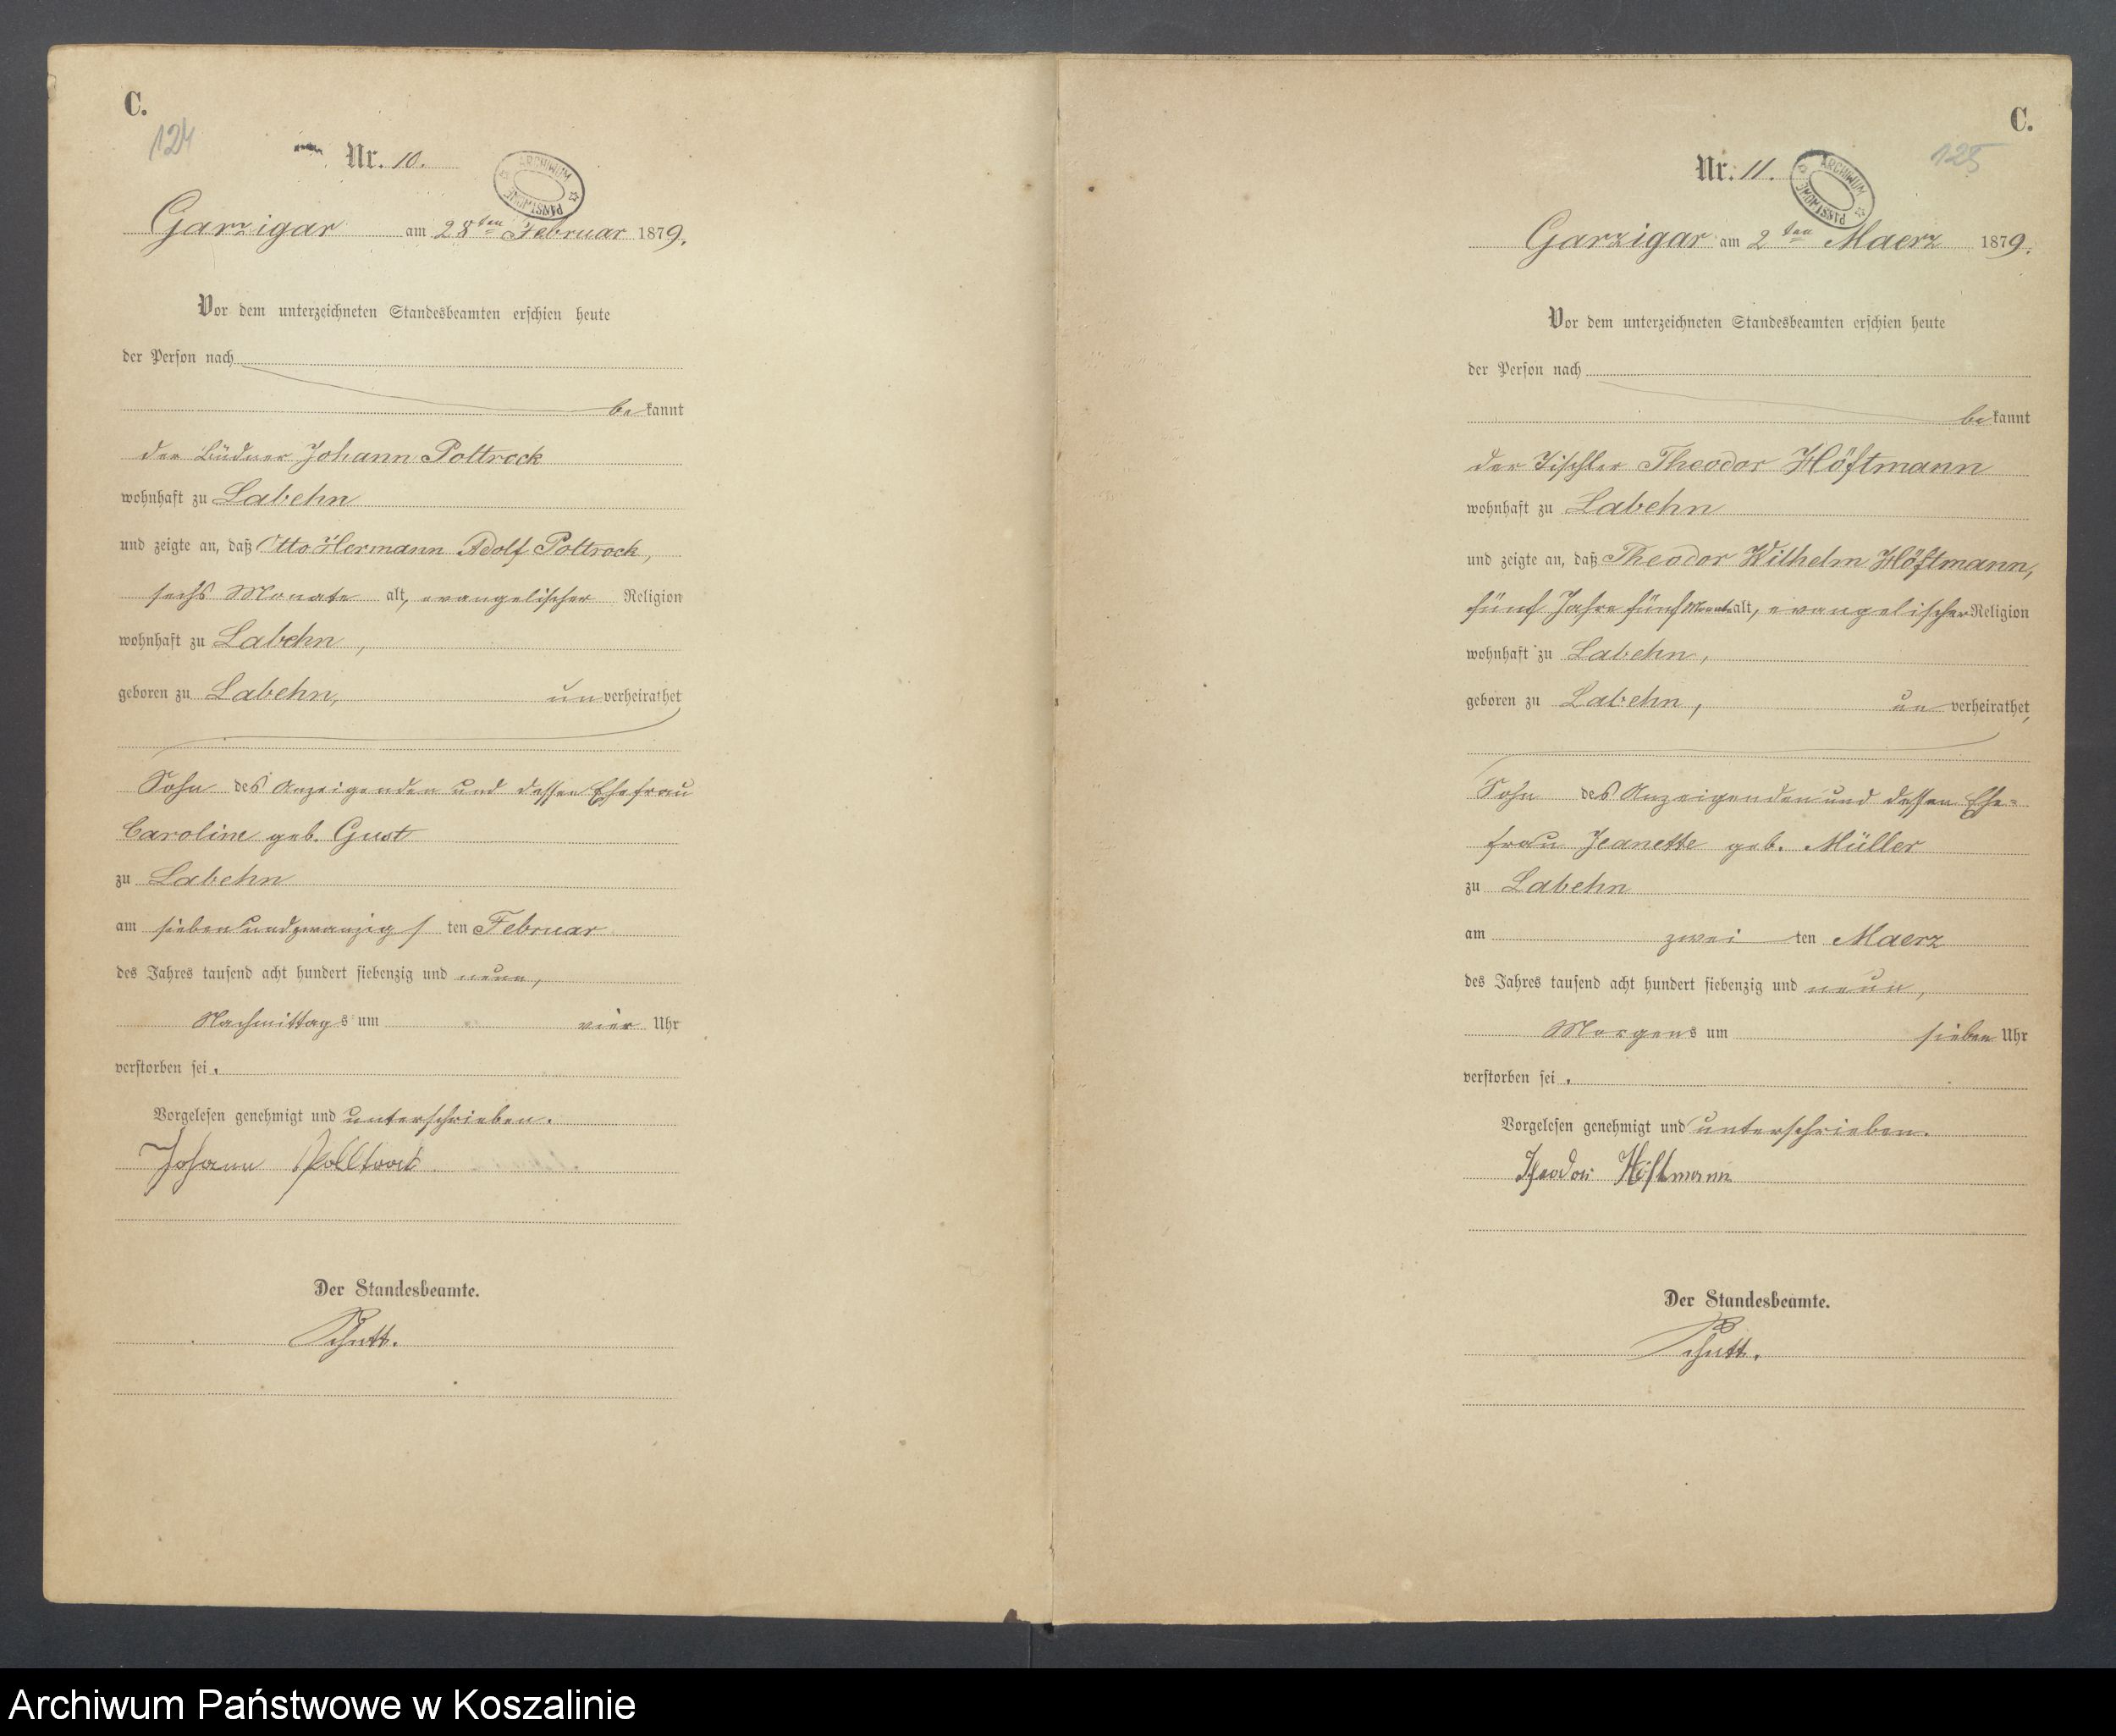 C.
124
Nr. 10.
ARCHIWUM PAŃSTWOWE
Garzigar am 28ten Februar 1879.
Vor dem unterzeichneten Standesbeamten erschien heute
der Person nach
bekannt
der Büdner Johann Poltrock
wohnhaft zu Labehn
und zeigte an, daß Otto Hermann Adolf Poltrock,
sechs Monate alt, evangelischer Religion
wohnhaft zu Labehn,
geboren zu Labehn, unverheirathet
Sohn des Anzeigenden und dessen Ehefrau
Caroline geb. Gust
zu Labehn
am sieben und zwanzigsten Februar
des Jahres tausend acht hundert siebenzig und neun,
Nachmittags um vier Uhr
verstorben sei.
Vorgelesen genehmigt und unterschrieben.
Johann
Der Standesbeamte.
Schutt.
C.
125
Nr. 11.
ARCHIWUM PAŃSTWOWE
Garzigar am 2ten Maerz 1879.
Vor dem unterzeichneten Standesbeamten erschien heute
der Person nach
bekannt
der Tischler Theodor Höftmann
wohnhaft zu Labehn
und zeigte an, daß Theodor Wilhelm Höftmann,
fünf Jahre fünf Monate alt, evangelischer Religion
wohnhaft zu Labehn,
geboren zu Labehn, unverheirathet,
Sohn des Anzeigenden und dessen Ehe=
frau Jeanette geb. Müller
zu Labehn
am zweiten Maerz
des Jahres tausend acht hundert siebenzig und neun,
Morgens um sieben Uhr
verstorben sei.
Vorgelesen genehmigt und unterschrieben.
Theodor Höftmann
Der Standesbeamte.
Schutt.
Archiwum Państwowe w Koszalinie